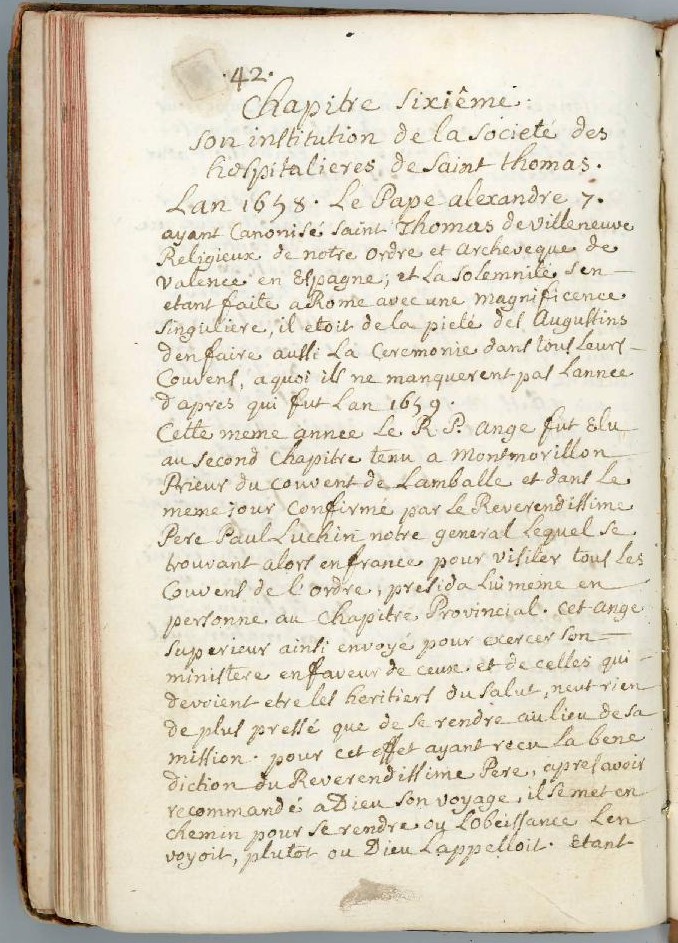 .42.
Chapitre sixiême:
son institution de la societé des
hospitalieres de saint thomas.
Lan 1658. Le Pape alexandre 7.
ayant Canonisé saint Thomas de villeneuve
Religieux de notre ordre et archeveque de
valence en Espagne; et La solemnité s'en
etant faite a Rome avec une magnificence
singuliere, il etoit de la pieté des Augustins
d'en faire aussi La Ceremonie dans tous Leurs
Couvens, a quoi ils ne manquerent pas Lannee
d'apres qui fut Lan 1659.
Cette meme annee Le R P. ange fut Elu
au second Chapitre tenu a Montmorillon
Prieur du couvent de Lamballe et dans Le
meme jour Confirmé par Le Reverendissime
Pere Paul Luchin notre general Lequel se
trouvant alors en france pour visiter tous Les
Couvens de l'ordre, presida Lui meme en
personne au Chapitre Provincial. Cet ange
superieur ainsi envoyé pour exercer son
ministere en faveur de ceux et de celles qui
devoient etre les heritiers du salut, neut rien
de plus pressé que de se rendre au lieu de sa
mission. pour cet effet ayant recu La bene
diction du Reverendissime Pere, apres avoir
recommandé a Dieu son voyage, il se met en
chemin pour se rendre ou L'obeissance Len
voyoit, plutot ou Dieu Lappelloit. Etant